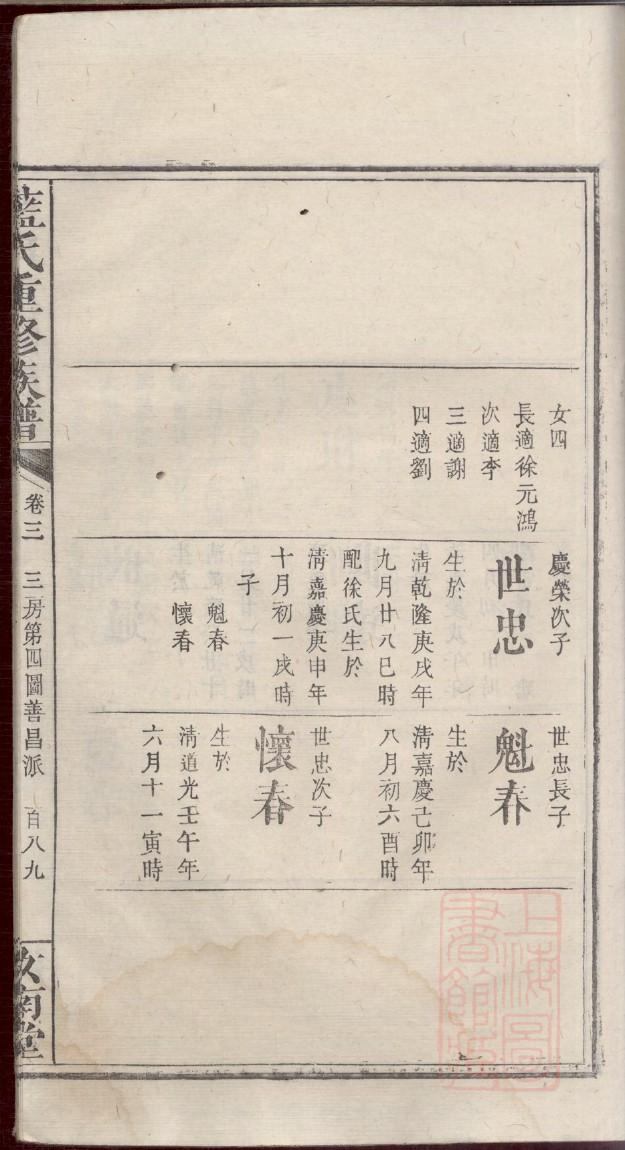 女四
長適徐元鴻
次適李
三適謝
四適劉
慶榮次子
世忠
生於
清乾隆庚戌年
九月廿八巳時
配徐氏生於
清嘉慶庚申年
十月初一戌時
子
魁春
懷春
世忠長子
魁春
生於
清嘉慶己卯年
八月初六酉時
世忠次子
懷春
生於
清道光壬午年
六月十一寅時
藍氏重修族譜
卷三
三房第四圖善昌派
百八九
汝南堂
上海圖
書館藏